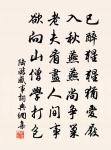 已醉猩猩猶愛屐
入秋燕燕尚爭巢
老夫看盡人間事
欲向山僧學打包
陸游感事詞典網集